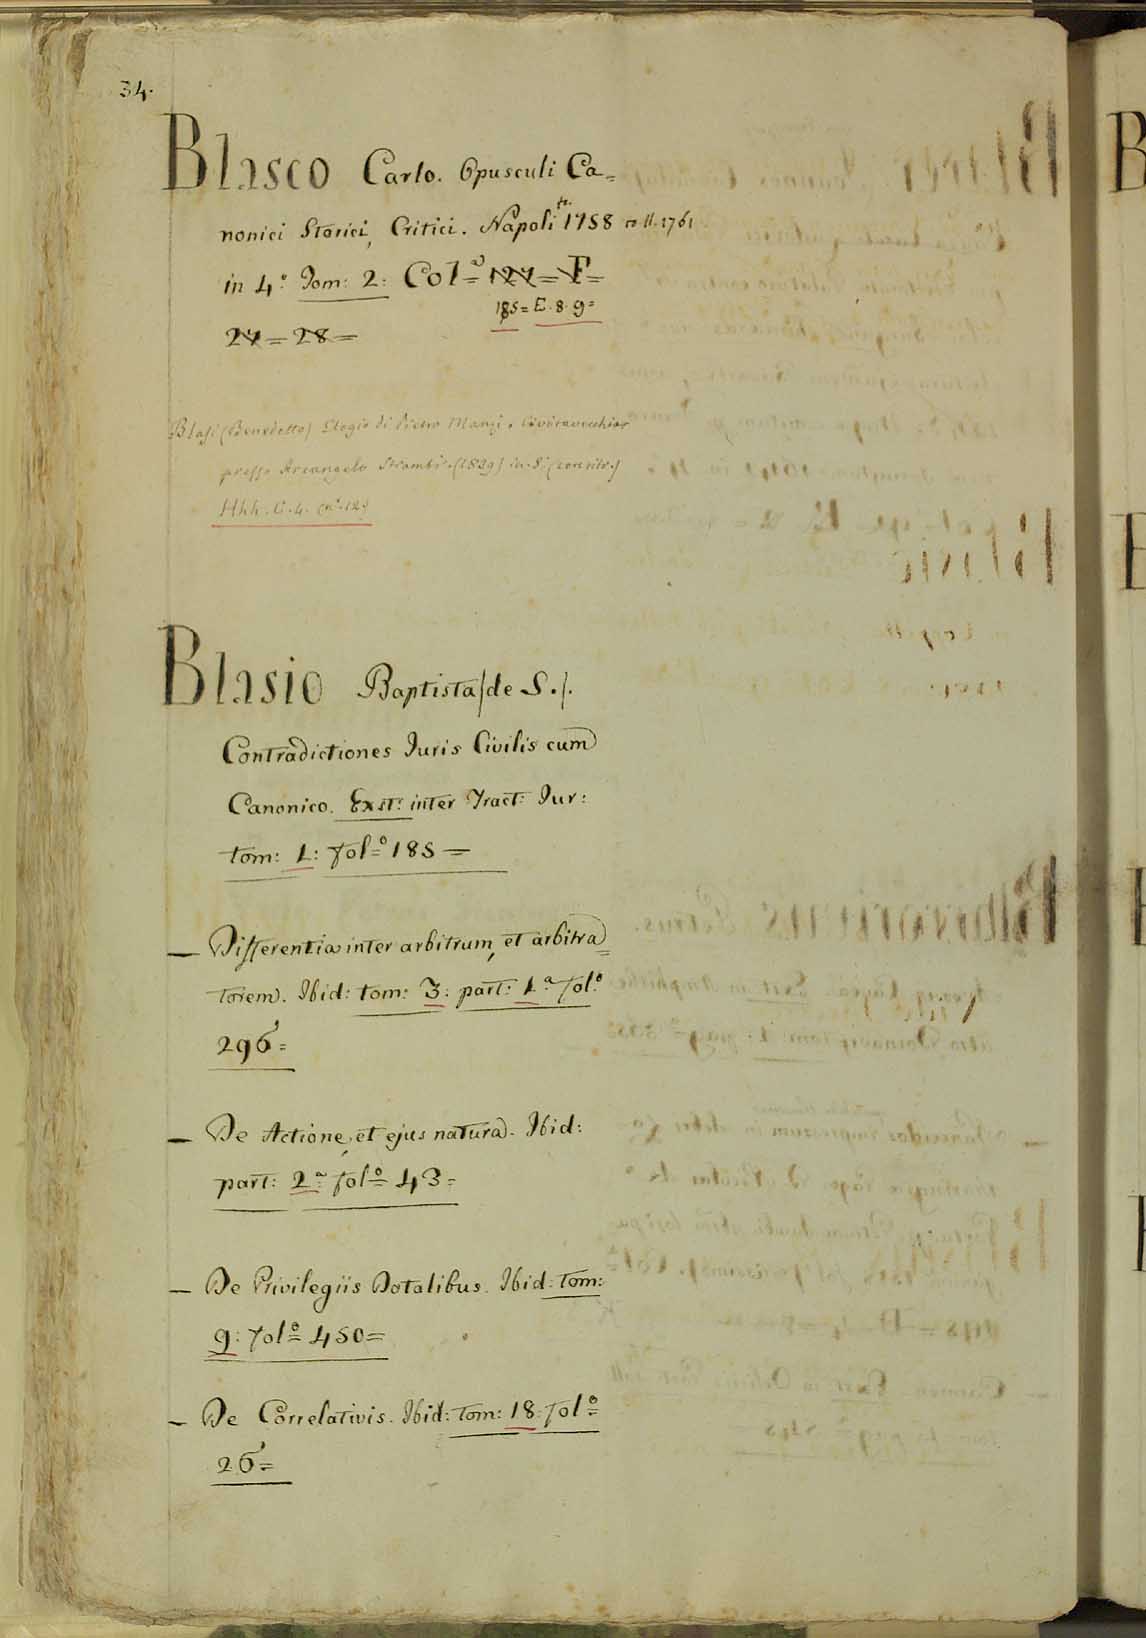 34.
Blasco Carlo. Opusculi Ca=
nonici Storici, Critici. Napoli to. 1758 to. II. 1761
in 4.º Tom: 2: Col=º 127=F=
185=E.8.9=
27=28=
Blasi (Benedetto) Elogio di Pietro Manzi. Civitavecchia
presso Arcangelo Strambi. (1829) in-8. (con ritr.)
Hhh. C. 4. (nº. 12)
Blasio Baptista/de S./.
Contradictiones Juris Civilis cum
Canonico. Exst: inter Tract: Jur:
tom: 1: fol=º 185=
— Differentia inter arbitrum, et arbitra=
torem. Ibid: tom: 3: part: 1.ª fol.º
296=
— De Actione, et ejus natura. Ibid:
part: 2.ª fol=º 43=
— De Privilegiis Dotalibus. Ibid: tom:
9: fol=º 450=
— De Correlativis. Ibid: tom: 18: fol=º
26=